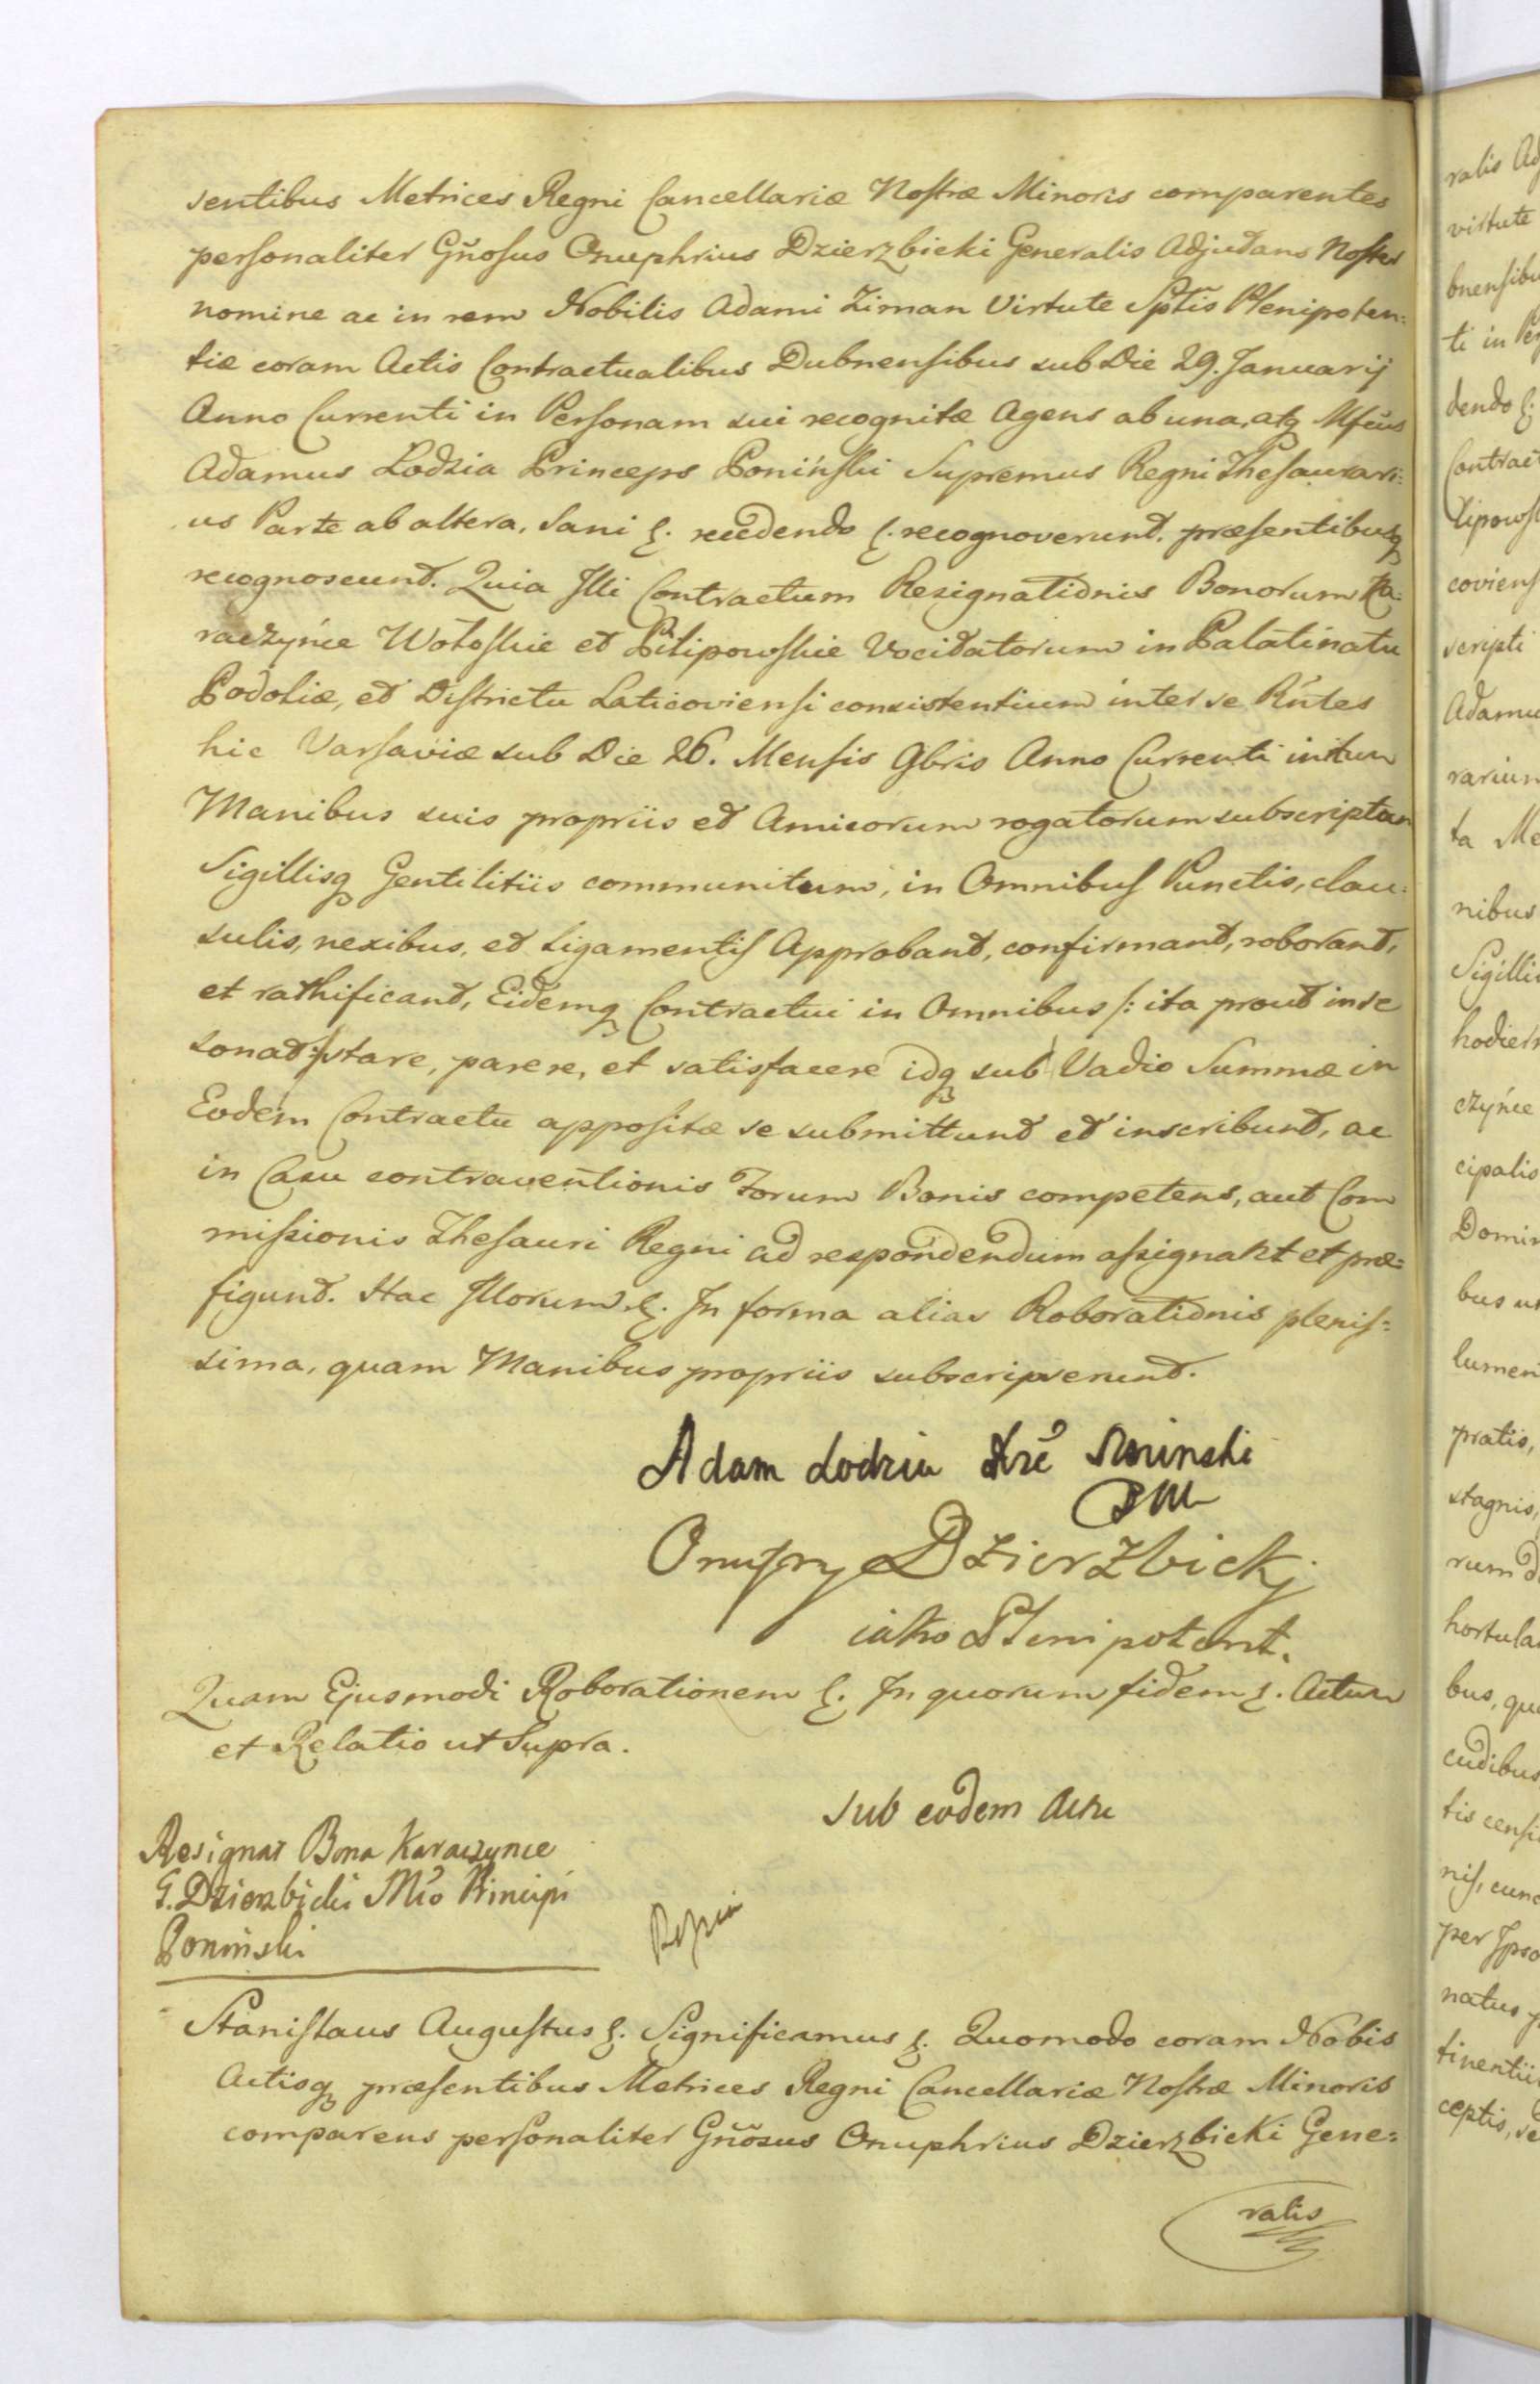 sentibus Metrices Regni Cancellariæ Nostræ Minoris comparentes
personaliter Gñosus Onuphrius Dzierzbicki Generalis Adjudans Noster
nomine ac in rem Nobilis Adami Ziman Virtute Sptis Plenipoten:
tiæ coram Actis Contractualibus Dubnensibus sub Die 29. Januarij
Anno Currenti in Personam sui recognitæ Agens ab una, atq Mfcus
Adamus Lodzia Princeps Poniński Supremus Regni Thesaurari:
us Parte ab altera, Sani &. recedendo &. recognoverunt. præsentibusq
recognoscunt. Quia Illi Contractum Resignationis Bonorum Ka:
raczyńce Wołoskie et Filipowskie Vocitatorum in Palatinatu
Podoliæ, et Districtu Laticoviensi consistentium inter se Rñtes
hic Varsaviæ sub Die 26. Mensis 9bris Anno Currenti initum
Manibus suis propriis et Amicorum rogatorum subscriptum
Sigillisq Gentilitiis communitum, in Omnibus Punctis, clau:
sulis, nexibus, et Ligamentis Approbant, confirmant, roborant,
et rathificant, Eidemq Contractui in Omnibus /: ita prout in se
sonat :/ stare, parere, et satisfacere idq sub Vadio Summæ in
Eodem Contractu appositæ se submittunt et inscribunt, ac
in Casu contraventionis Forum Bonis competens, aut Com
missionis Thesauri Regni ad respondendum assignant et præ:
figunt. Hac Illorum &. In forma alias Roborationis plenis:
sima, quam Manibus propriis subscripserunt.
Adam Lodzia Xże Poninski
PWK
Onufry Dzierzbickj
iako Plenipotent.
Quam Ejusmodi Roborationem &. In quorum fidem &. Actum
et Relatio ut Supra.
Sub eodem Actu
Resignat Bona Karaczynce
G. Dzierzbicki Mco Principi
Poninski
Stanislaus Augustus &. Significamus &. Quomodo coram Nobis
Actisq præsentibus Metrices Regni Cancellariæ Nostræ Minoris
comparens personaliter Gñosus Onuphrius Dzierzbicki Gene:
ralis